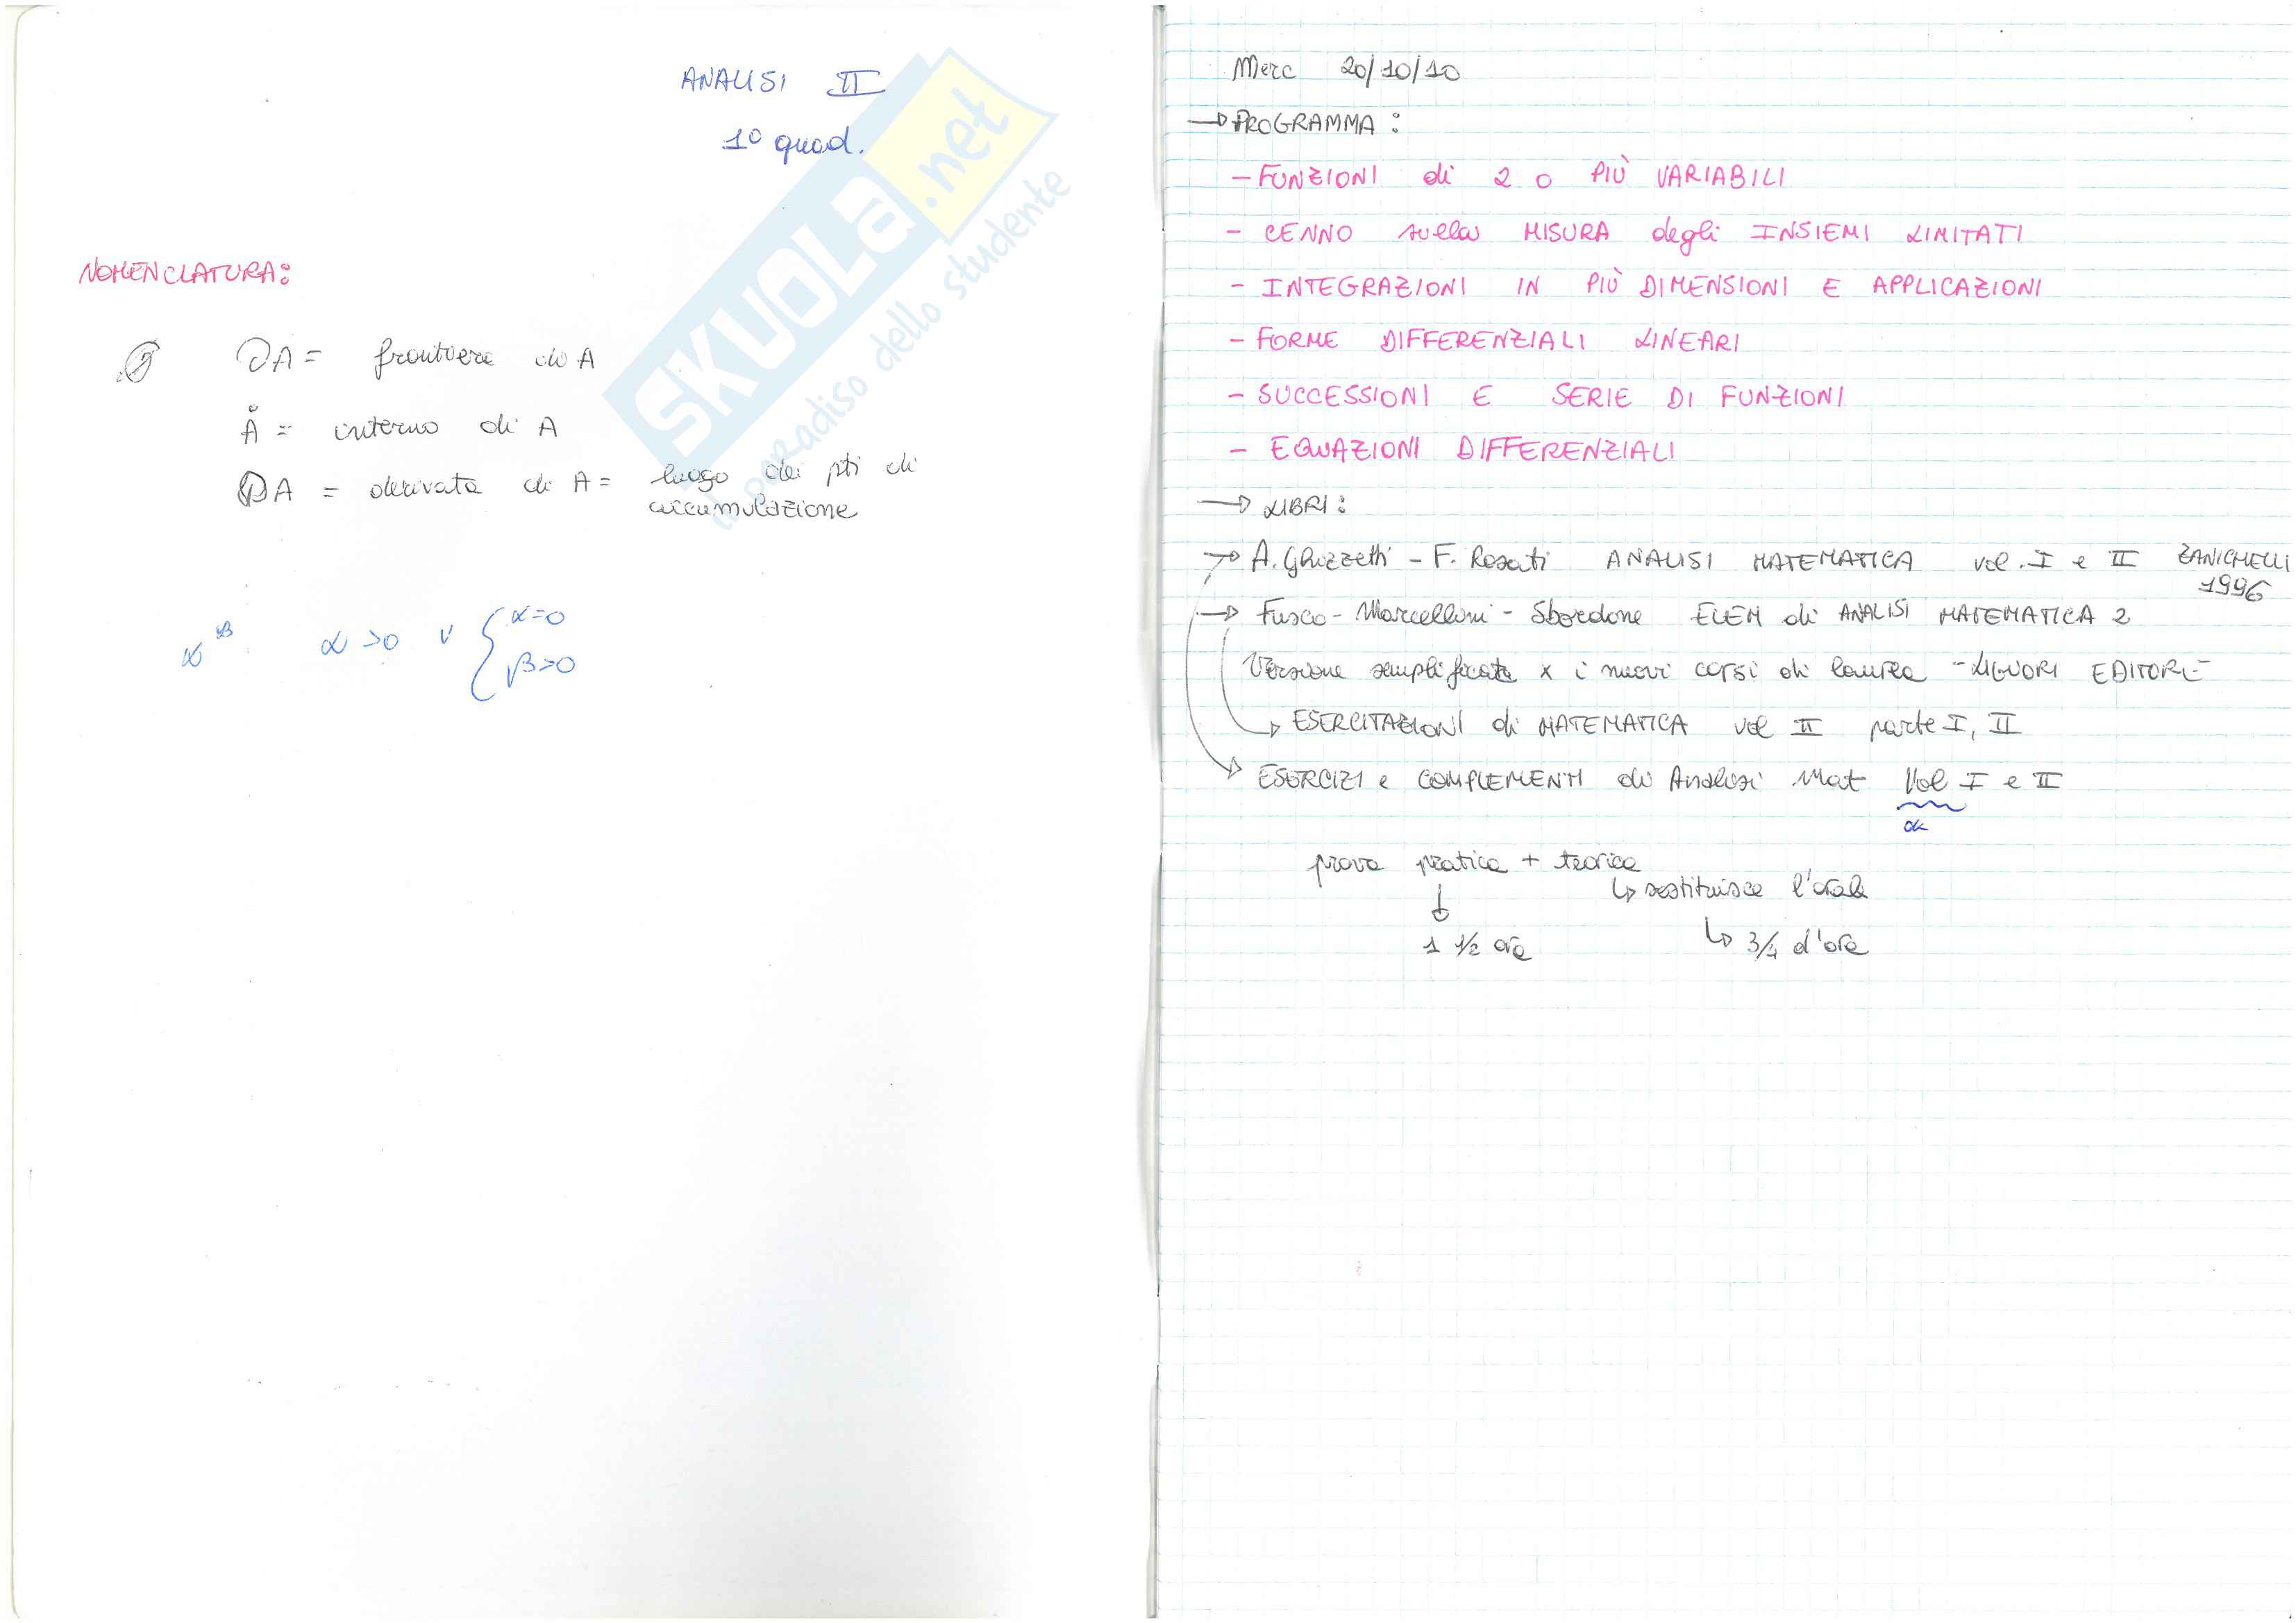 ANALISI II
1° quad.
SKUOLA.net
il paradiso dello studente
NOMENCLATURA:
∂A = frontiera di A
Å = interno di A
DA = derivato di A = luogo dei pti di
accumulazione
α^β α>0 ∨ { α=0
β>0
Merc 20/10/10
→ PROGRAMMA:
- FUNZIONI di 2 o PIÙ VARIABILI
- CENNO sulla MISURA degli INSIEMI LIMITATI
- INTEGRAZIONI IN PIÙ DIMENSIONI E APPLICAZIONI
- FORME DIFFERENZIALI LINEARI
- SUCCESSIONI E SERIE DI FUNZIONI
- EQUAZIONI DIFFERENZIALI
→ LIBRI:
→ A. Ghizzetti - F. Rosati ANALISI MATEMATICA vol. I e II ZANICHELLI
1996
→ Fusco - Marcellini - Sbordone ELEM di ANALISI MATEMATICA 2
Versione semplificata x i nuovi corsi di laurea - LIGUORI EDITORE -
→ ESERCITAZIONI di MATEMATICA vol II parte I, II
→ ESERCIZI e COMPLEMENTI di Analisi Mat Vol I e II
ok
prova pratica + teorica
↳ sostituisce l'orale
↓
1 1/2 ora
↳ 3/4 d'ora